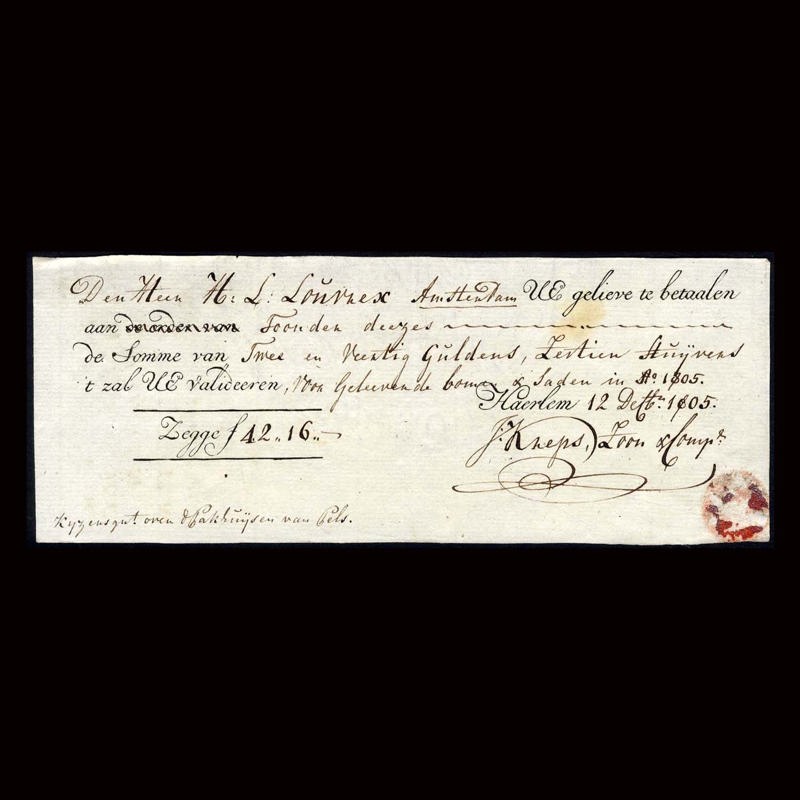 Den Heer H: L: Louvrex Amsterdam UE gelieve te betaalen
aan de orden van Toonder deezes
de Somme van Twee en Veertig Guldens, Zestien Stuyvers
't zal UE valideeren, Voor Geleverde bomen & Saden in Ao. 1805.
Haerlem 12 Decbr. 1805.
Zegge ƒ 42 ,, 16 ,, -
J: Kreps, Zoon & Compe.
over d Pakhuijsen van Pels.